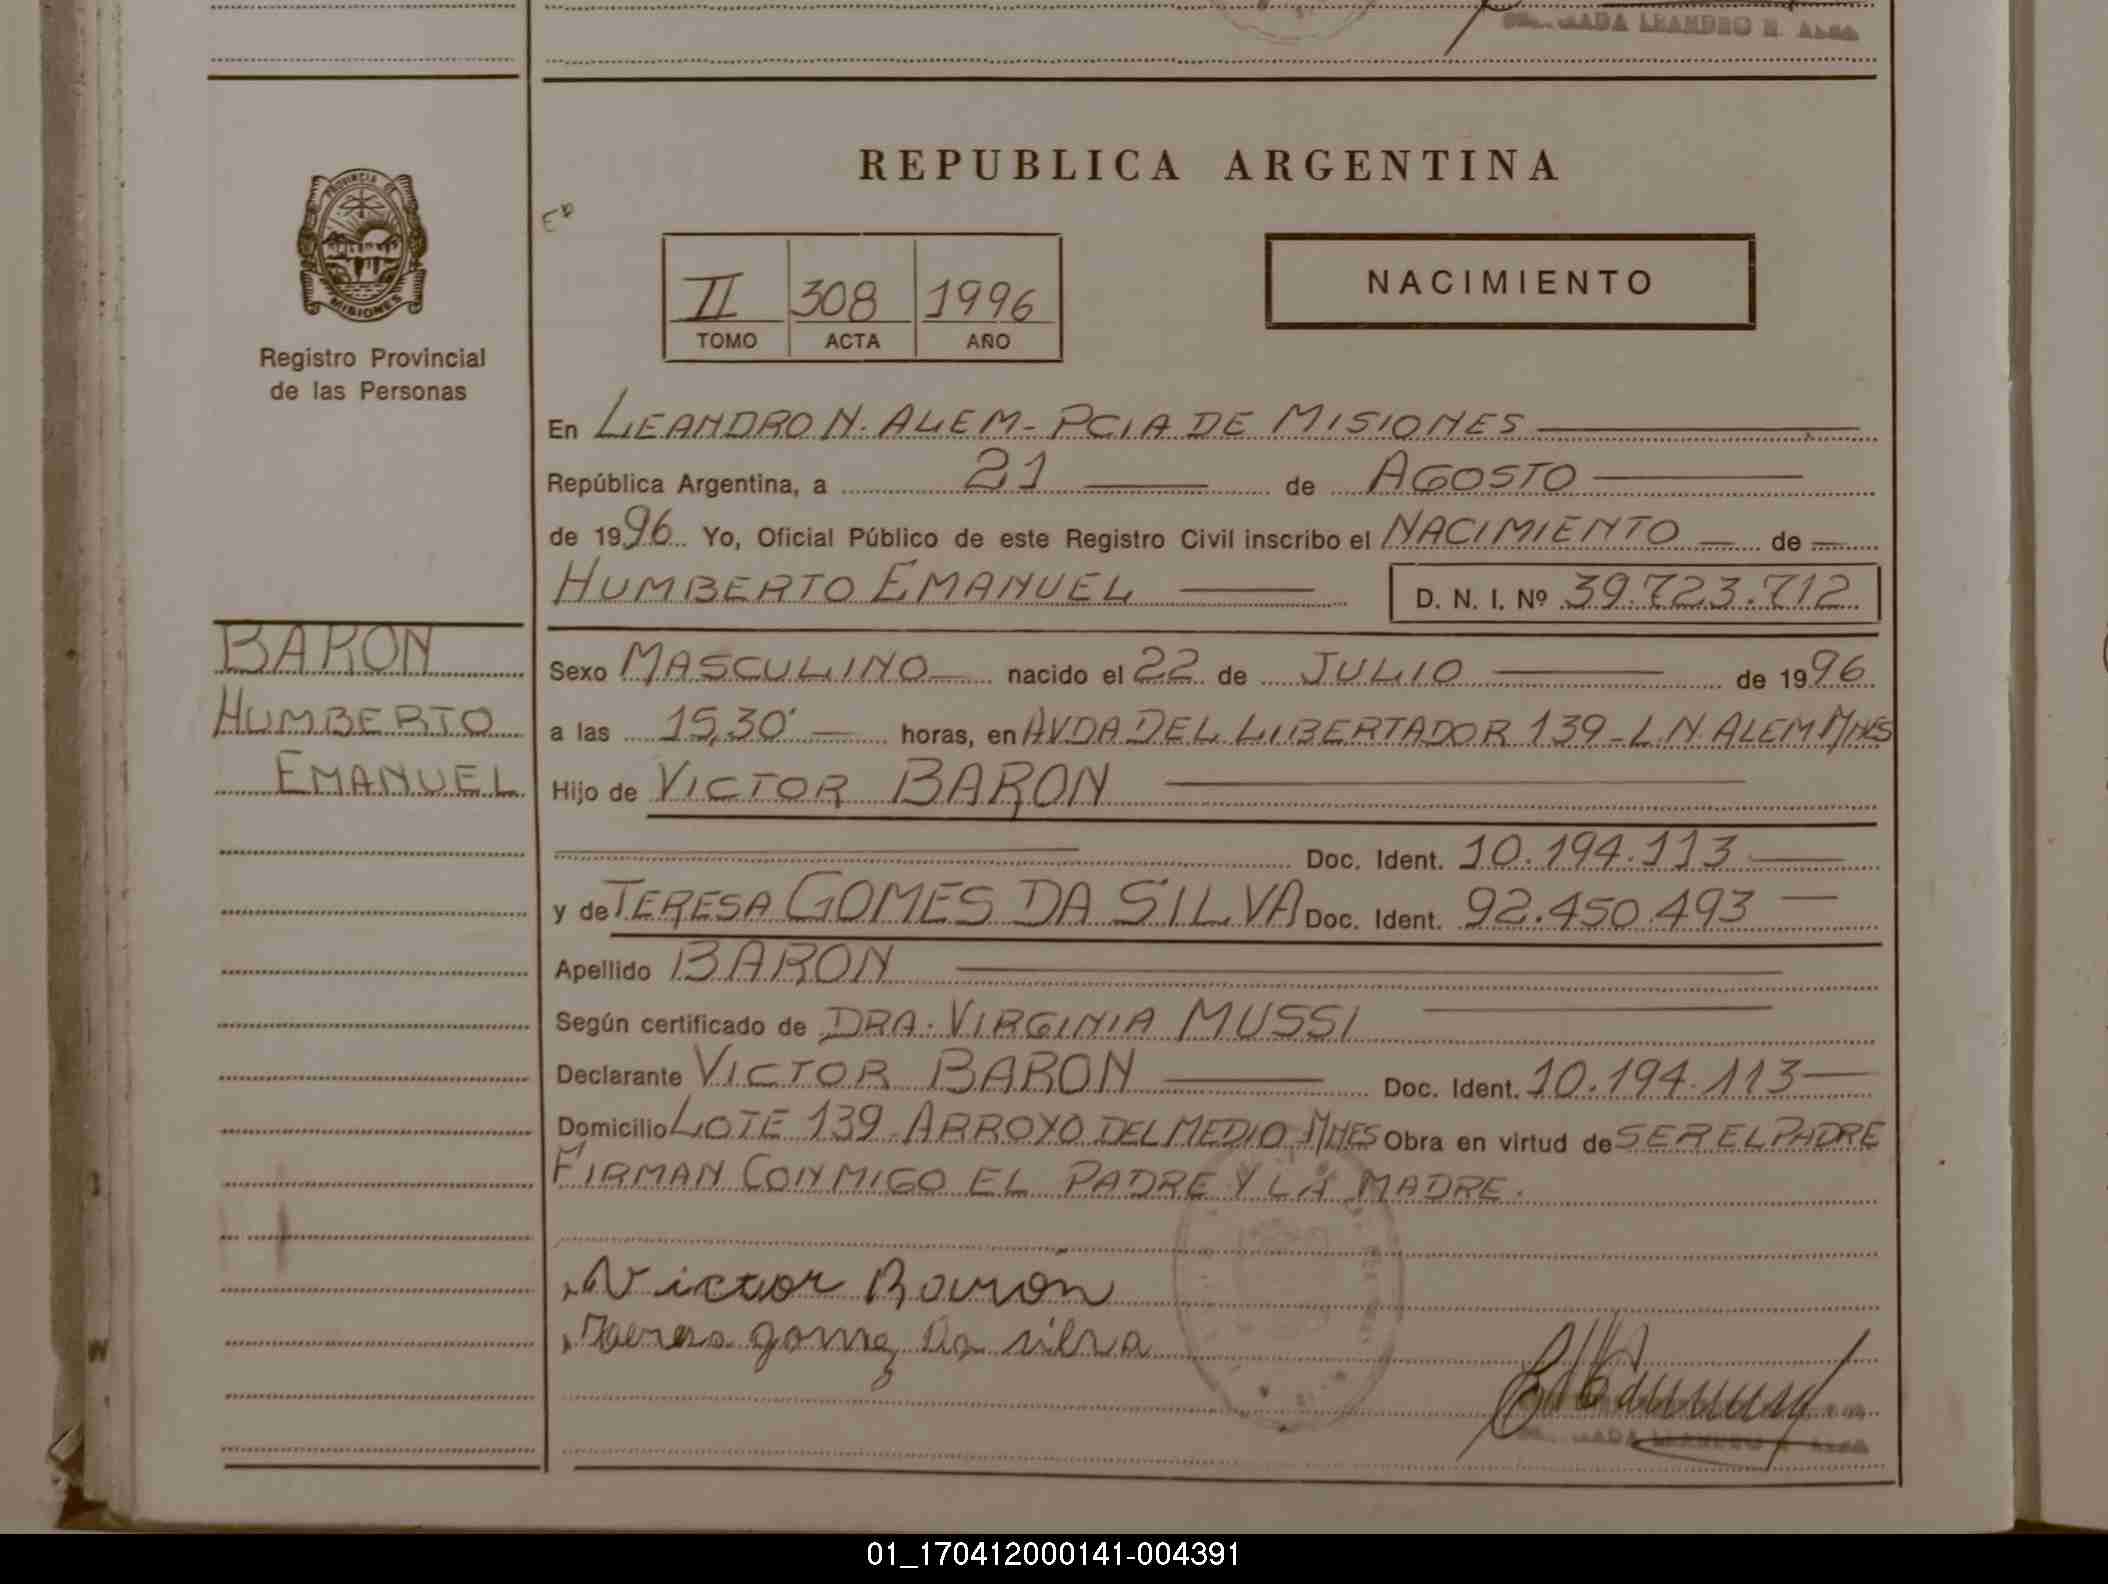 REPUBLICA ARGENTINA
PROVINCIA DE
MISIONES
Registro Provincial
de las Personas
II 308 1996
TOMO ACTA AÑO
NACIMIENTO
En LEANDRO N. ALEM - PCIA DE MISIONES
República Argentina, a 21 de AGOSTO
de 1996 Yo, Oficial Público de este Registro Civil inscribo el NACIMIENTO de
HUMBERTO EMANUEL D. N. I. Nº 39.723.712
BARON
HUMBERTO
EMANUEL
Sexo MASCULINO nacido el 22 de JULIO de 1996
a las 15,30' horas, en AVDA DEL LIBERTADOR 139 - L.N. ALEM MNES
Hijo de VICTOR BARON
Doc. Ident. 10.194.113
y de TERESA GOMES DA SILVA Doc. Ident. 92.450.493
Apellido BARON
Según certificado de DRA. VIRGINIA MUSSI
Declarante VICTOR BARON Doc. Ident. 10.194.113
Domicilio LOTE 139 ARROYO DEL MEDIO MNES Obra en virtud de SER EL PADRE
FIRMAN CONMIGO EL PADRE Y LA MADRE.
Victor Barón
gomez Da silva
01_170412000141-004391